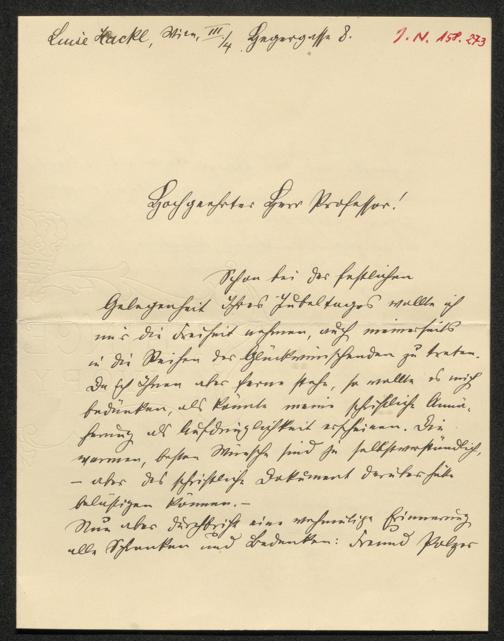 Luise Hackl, Wien, III/4 Hegergasse 8.
J. N. 158.273
Hochgeehrter Herr Professor!
Schon bei der festlichen
Gelegenheit Ihres Jubeltages wollte ich
mir die Freiheit nehmen, auch meinerseits
in die Reihen der Glückwünschenden zu treten.
Da ich Ihnen aber ferne stehe, so wollte es mich
bedünken, als könnte meine schriftliche Annä-
herung als Aufdringlichkeit erscheinen. Die
warmen, besten Wünsche sind ja selbstverständlich,
– aber das schriftliche Dokument darüber hätte
belästigen können. –
Nun aber durchbricht eine wehmütige Erinnerung
alle Schranken und Bedenken: Freund Polzer